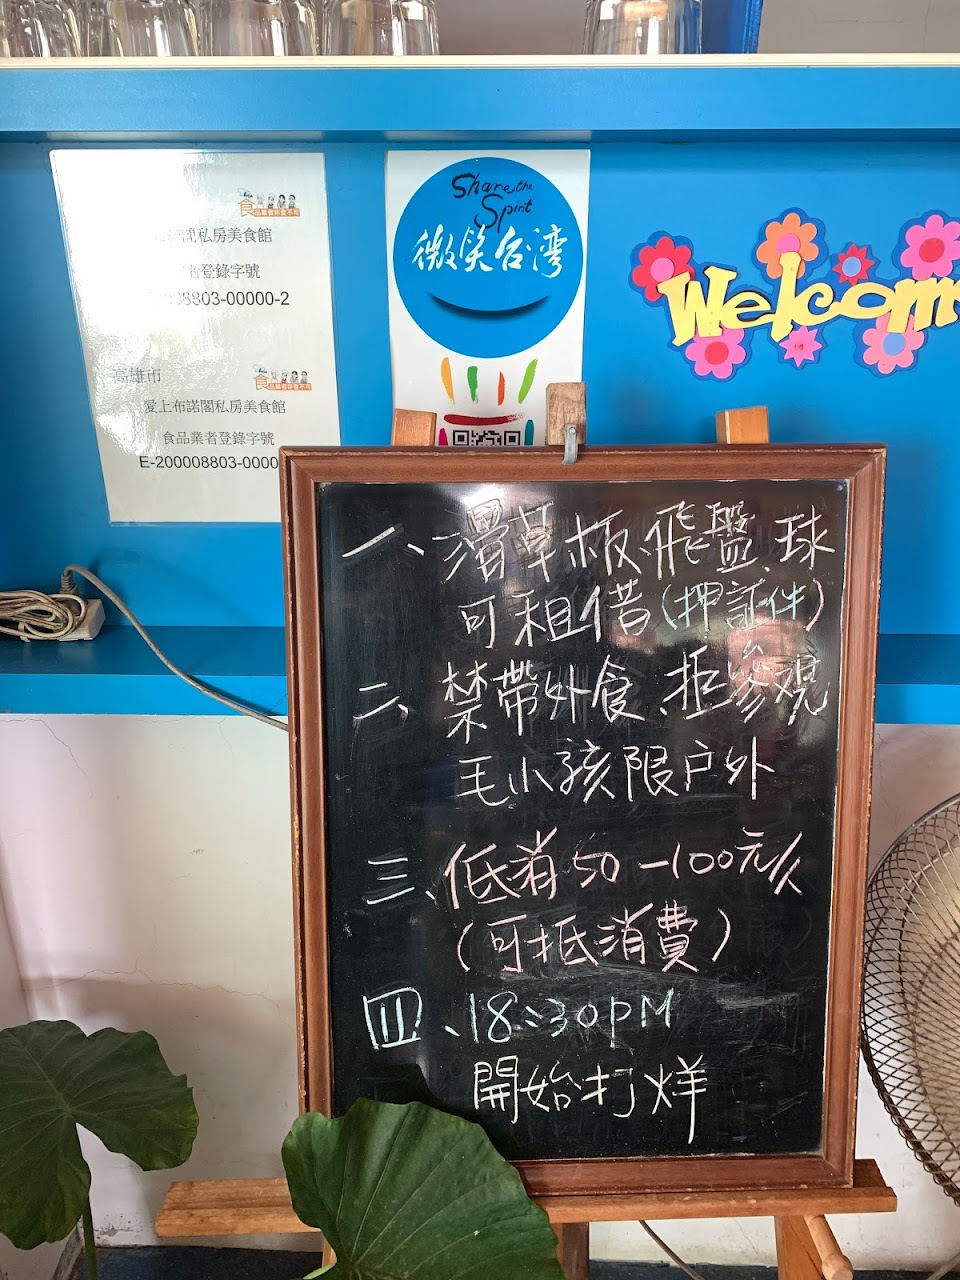 食品業者登錄字號
閣私房美食館
者登錄字號
8803-00000-2
高雄市
愛上布諾閣私房美食館
食品業者登錄字號
E-200008803-0000
Share the
Spirit
微笑台灣
Welcom
一、滑草板、飛盤、球
可租借(押証件)
二、禁帶外食、拒參观
毛小孩限户外
三、低消50-100元/人
(可抵消費)
四、18:30PM
開始打烊